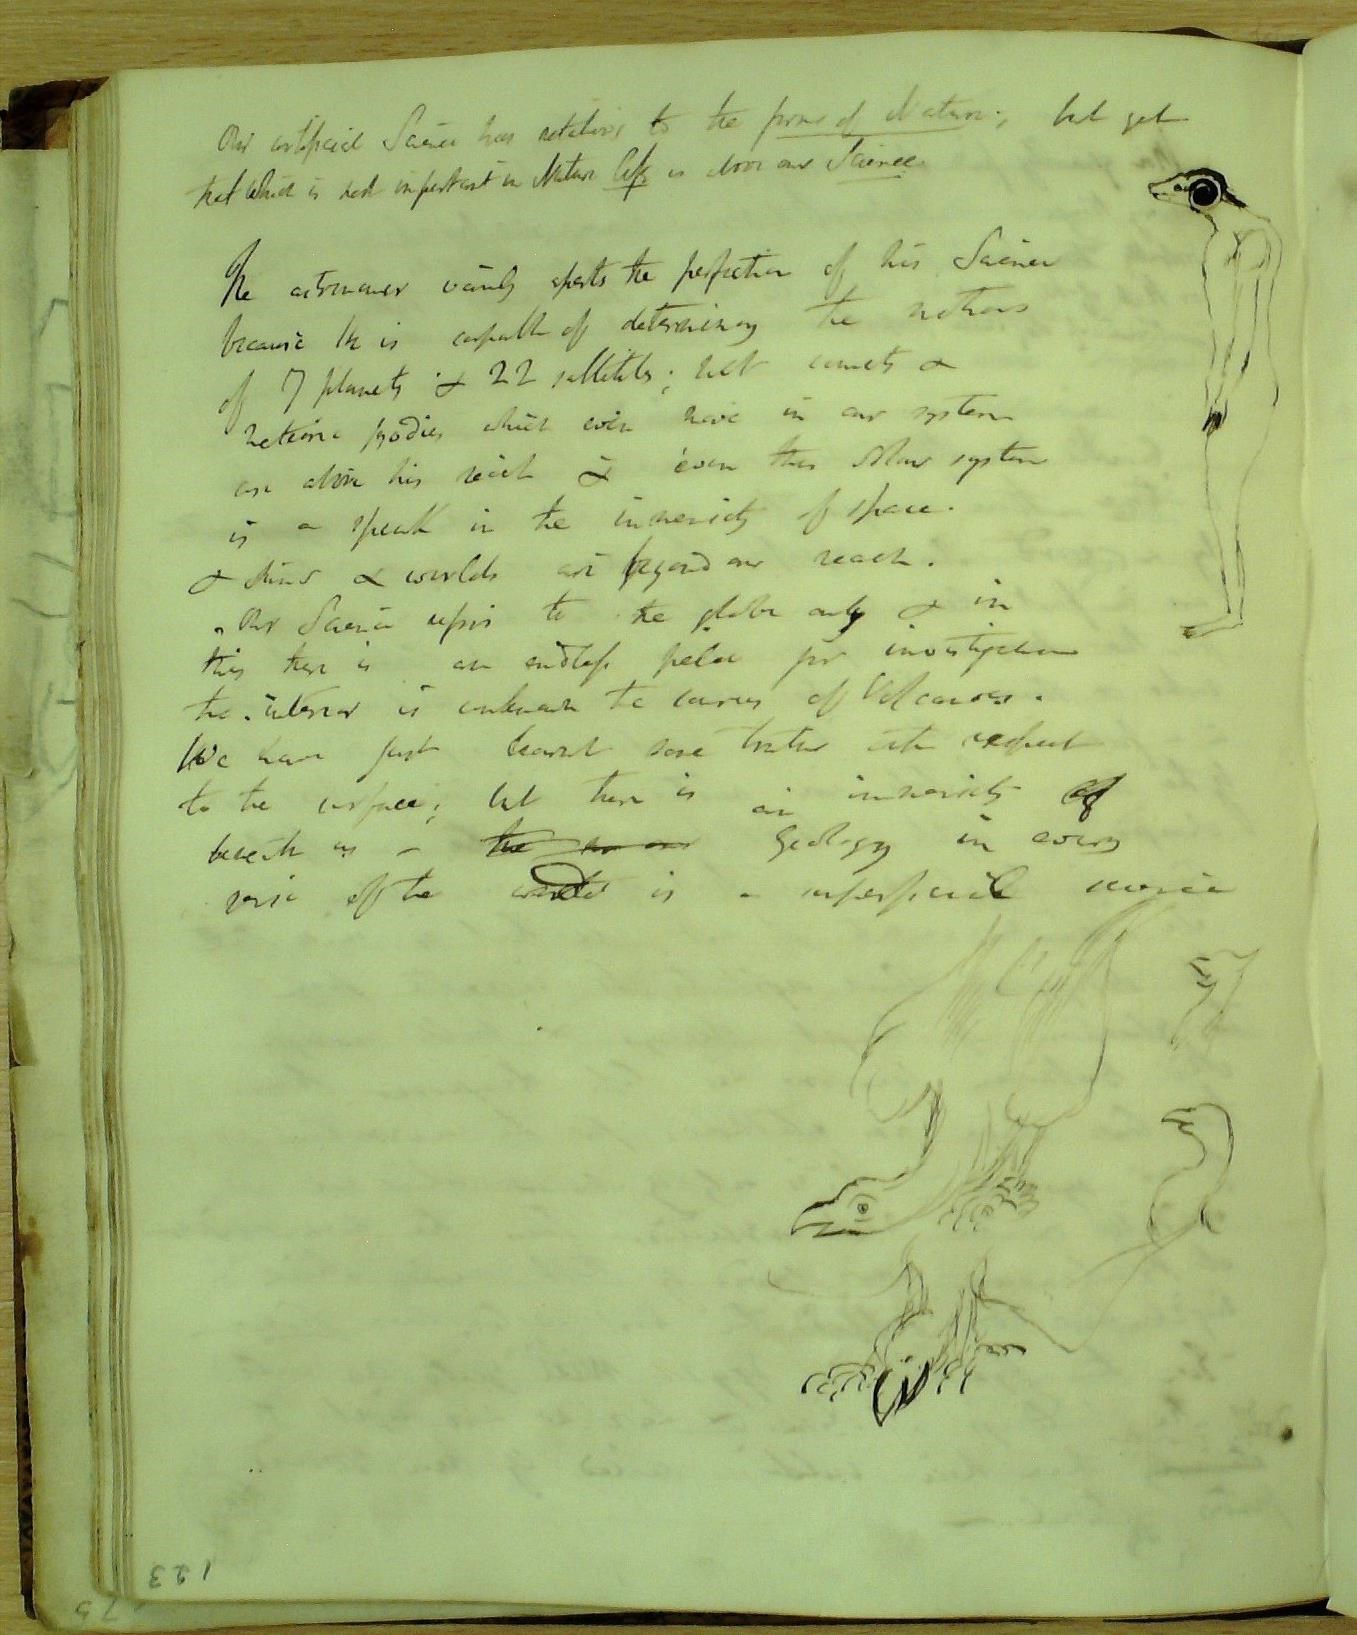 Our artificial Science has relations to the forms of Nature; but yet
that which is most important in Nature life is above our Science.
The astronomer vainly asserts the perfection of his Science
because he is capable of determining the motions
of 7 planets & 22 satellites; but comets &
meteoric bodies which even move in our system
are above his reach & even this solar system
is a speck in the immensity of space.
& suns & worlds are beyond our reach.
Our Science refers to the globe only & in
this there is an endless field for investigation
the interior is unknown the causes of Volcanoes.
We have just learnt some truths with respect
to the surface; but there is an immensity
beneath us - Geology in every
sense of the word is a superficial science
123
75